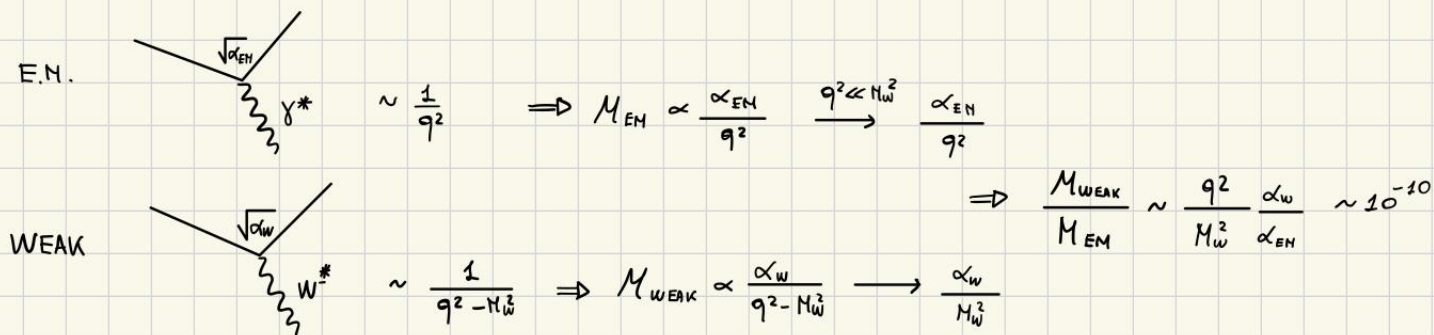 E.M. √α_EM γ* ~ 1/q² ⟹ M_EM ∝ α_EM/q² ⟶ (q² ≪ M_W²) α_EM/q²
⟹ M_WEAK/M_EM ~ q²/M_W² α_W/α_EM ~ 10⁻¹⁰
WEAK √α_W W* ~ 1/(q² - M_W²) ⟹ M_WEAK ∝ α_W/(q² - M_W²) ⟶ α_W/M_W²